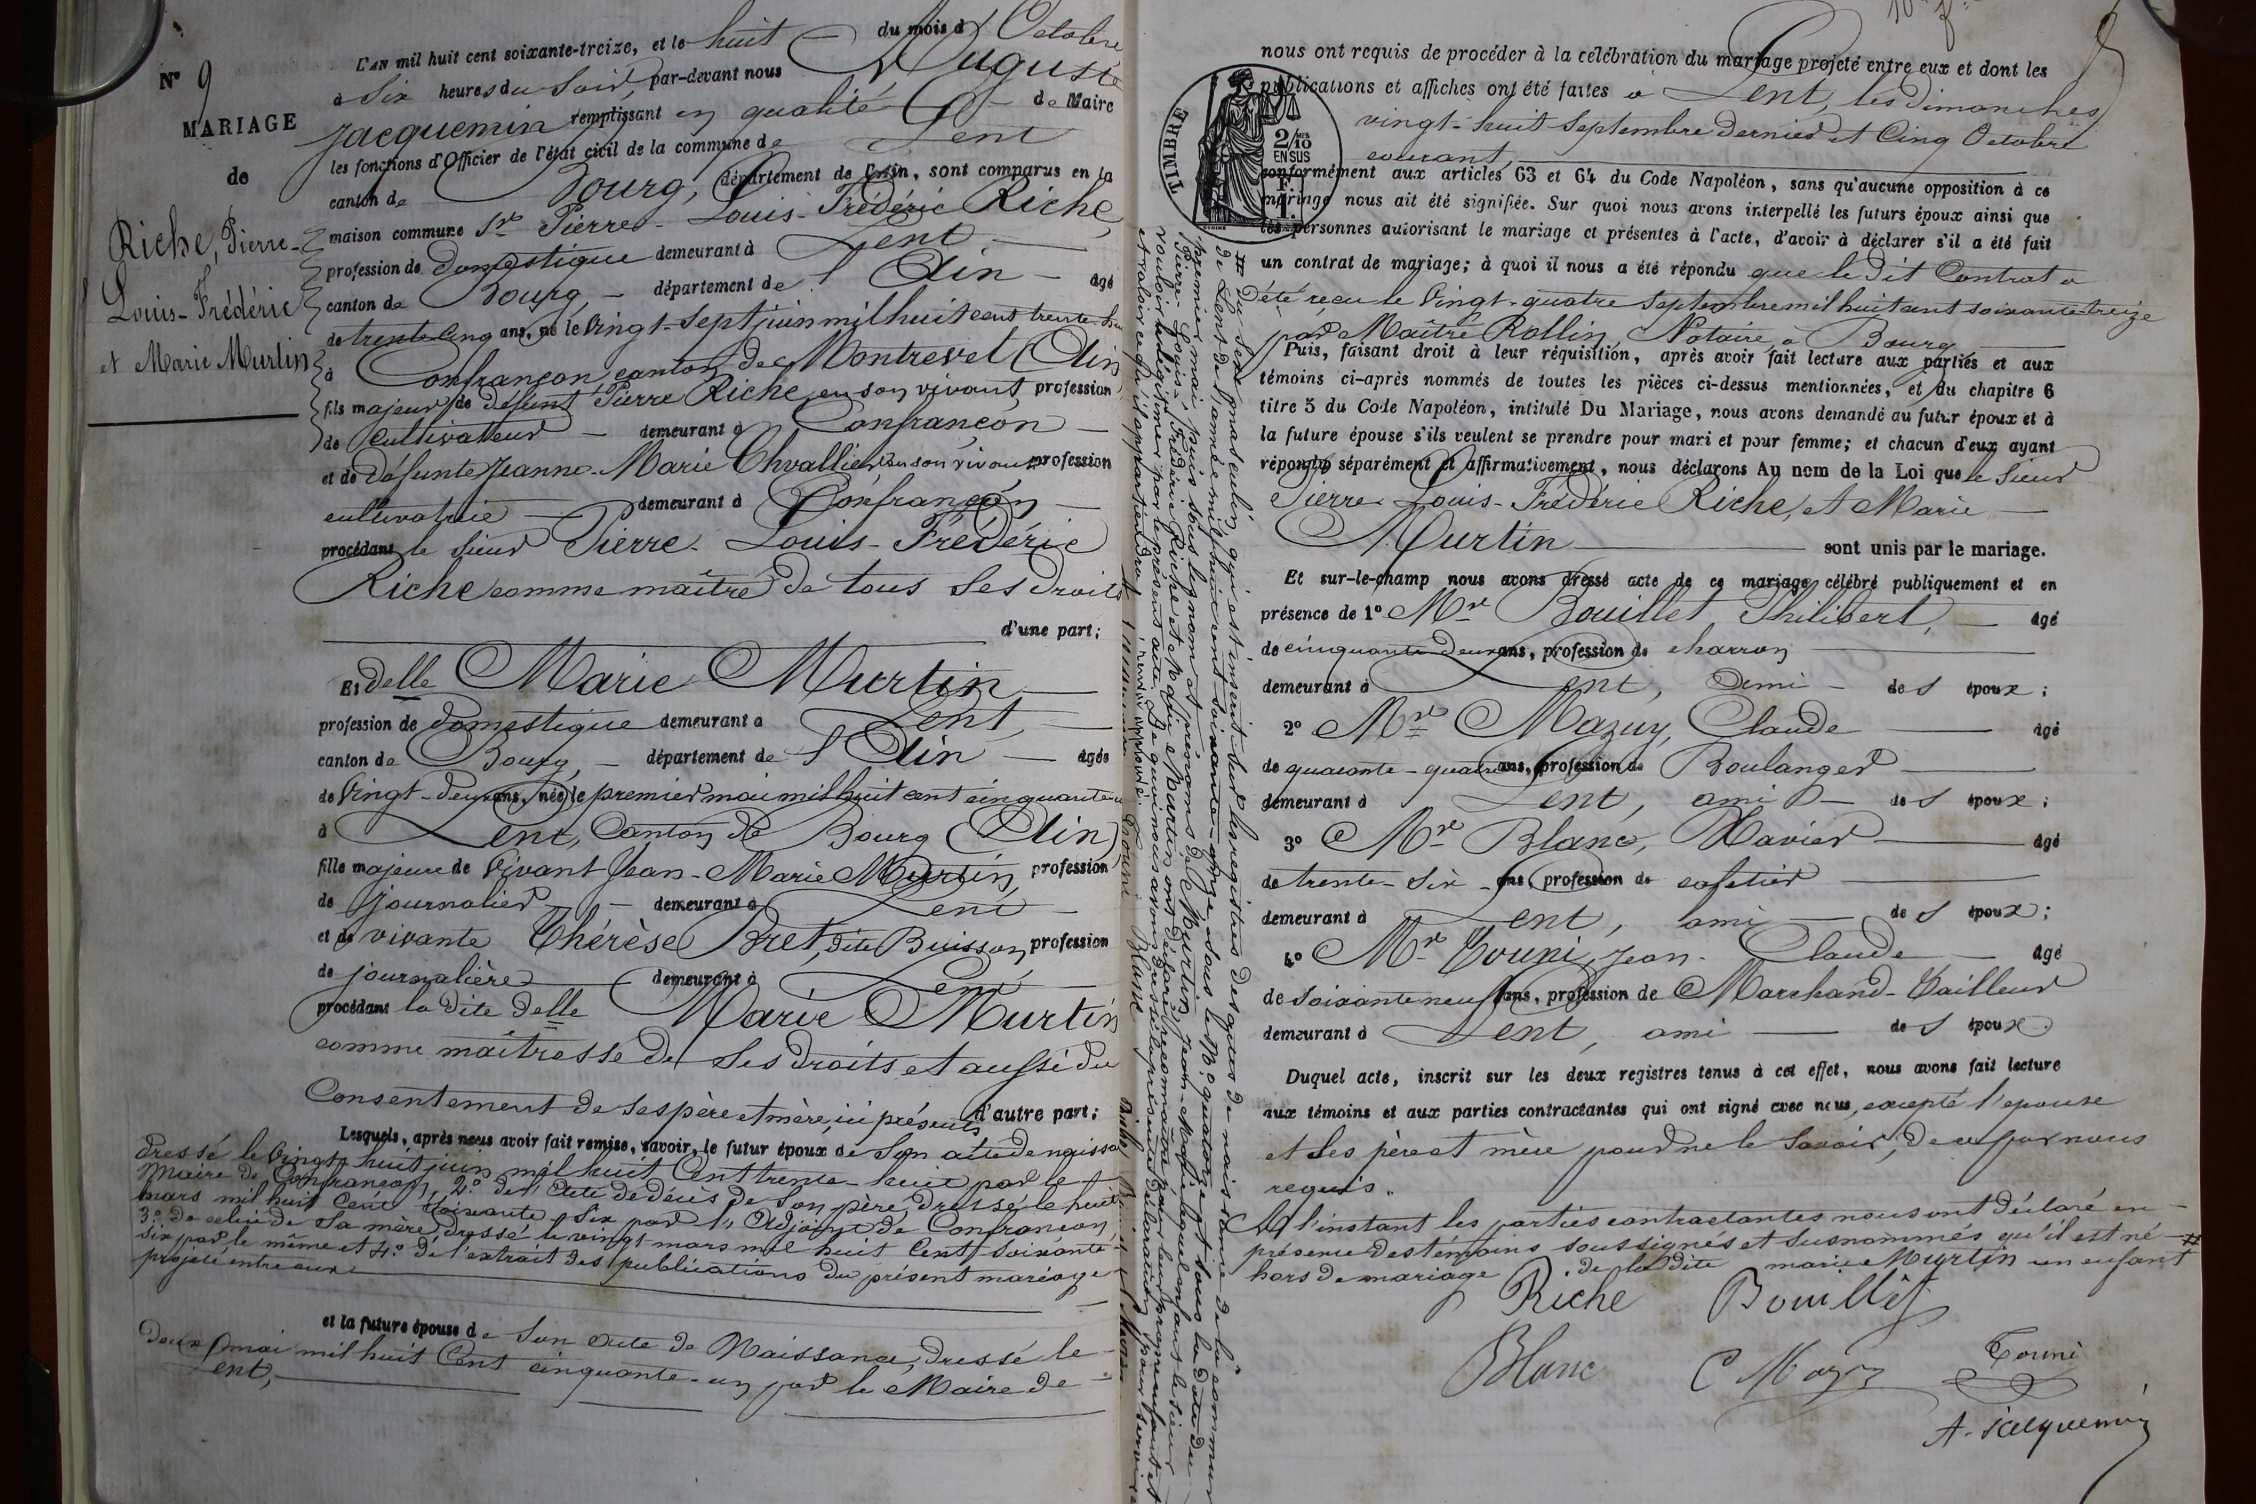 N° 9
MARIAGE
de
Riche, Pierre-
Louis-Frédéric
et Marie Murtin
L'AN mil huit cent soixante-treize, et le huit du mois d'Octobre
à Six heures du Soir, par-devant nous Auguste
Jacquemin remplissant en qualité de Maire
les fonctions d'Officier de l'état civil de la commune de Lent
canton de Bourg, département de l'Ain, sont comparus en la
maison commune Sr Pierre-Louis-Frédéric Riche,
profession de Domestique demeurant à Lent,
canton de Bourg, département de l'Ain âgé
de trente cinq ans, né le Vingt-Sept juin mil huit cent trente huit
à Confrançon canton de Montrevel (Ain)
fils majeur de défunt Pierre Riche, en son vivant, profession
de Cultivateur demeurant à Confrançon
et de défunte Jeanne-Marie Chvallier en son vivant profession
cultivatrice demeurant à Confrançon
procédant le Sieur Pierre-Louis-Frédéric
Riche comme maître de tous Ses droits
d'une part;
Et delle Marie Murtin
profession de Domestique demeurant à Lent,
canton de Bourg, département de l'Ain âgée
de Vingt-Deux ans, née le premier mai mil huit cent cinquante un
à Lent, Canton de Bourg (Ain)
fille majeure de Vivant Jean-Marie Murtin, profession
de journalier demeurant à Lent
et de vivante Thérèse Bret, dite Buisson, profession
de journalière demeurant à Lent
procédant la dite Delle Marie Murtin
comme maîtresse de Ses droits et aussi du
Consentement de Ses père et mère, ici présents d'autre part;
Lesquels, après nous avoir fait remise, savoir, le futur époux de Son acte de naissance
dressé le Vingt-huit juin mil huit Cent trente-huit par le
Maire de Confrançon, 2° de l'Acte de décès de Son père, dressé le huit
mars mil huit Cent Soixante Six par l'Adjoint de Confrançon,
3° de celui de Sa mère, dressé le vingt mars mil huit Cent Soixante
six par le même et 4° de l'extrait des publications du présent mariage
projeté entre eux
et la future épouse de Son Acte de Naissance, dressé le
deux mai mil huit Cent cinquante-un par le Maire de
Lent,
# du Sexe masculin, qui est inscrit sur les registres des actes de naissance de la commune
de Lent de l'année mil huit cent soixante-onze, sous le N° quatorze et sous la date du
premier mai, puis sous le nom et prénoms de Murtin, Jean-Marie lequel enfant le sieur
Pierre-Louis-Frédéric Riche et Marie Murtin ont déclaré reconnaître pour leur propre enfant et
vouloir légitimer par le présent acte. De quoi nous avons dressé la présente déclaration pour servir
et valoir ce qu'il appartiendra.
Touni Blanc
Riche
TIMBRE
2/10
EN SUS
nous ont requis de procéder à la célébration du mariage projeté entre eux et dont les
publications et affiches ont été faites à Lent, les Dimanches
vingt-huit Septembre dernier et Cinq Octobre
courant,
conformément aux articles 63 et 64 du Code Napoléon, sans qu'aucune opposition à ce
mariage nous ait été signifiée. Sur quoi nous avons interpellé les futurs époux ainsi que
les personnes autorisant le mariage et présentes à l'acte, d'avoir à déclarer s'il a été fait
un contrat de mariage; à quoi il nous a été répondu que le Dit Contrat a
été reçu le Vingt-quatre Septembre mil huit cent soixante treize
par Maître Rollin, Notaire à Bourg
Puis, faisant droit à leur réquisition, après avoir fait lecture aux parties et aux
témoins ci-après nommés de toutes les pièces ci-dessus mentionnées, et du chapitre 6
titre 5 du Code Napoléon, intitulé Du Mariage, nous avons demandé au futur époux et à
la future épouse s'ils veulent se prendre pour mari et pour femme; et chacun d'eux ayant
répondu séparément et affirmativement, nous déclarons Au nom de la Loi que le Sieur
Pierre-Louis-Frédéric Riche, et Marie
Murtin sont unis par le mariage.
Et sur-le-champ nous avons dressé acte de ce mariage célébré publiquement et en
présence de 1° Mr Bouillet Philibert, âgé
de cinquante deux ans, profession de charron
demeurant à Lent, Ami des époux;
2° Mr Mazuy, Claude âgé
de quarante-quatre ans, profession de Boulanger
demeurant à Lent, ami des époux;
3° Mr Blanc, Xavier âgé
de trente-Six ans, profession de cafetier
demeurant à Lent, ami des époux;
4° Mr Touni, Jean-Claude âgé
de Soixante neuf ans, profession de Marchand-Tailleur
demeurant à Lent, ami des époux.
Duquel acte, inscrit sur les deux registres tenus à cet effet, nous avons fait lecture
aux témoins et aux parties contractantes qui ont signé avec nous, excepté l'épouse
et Ses père et mère pour ne le Savoir, de ce par nous
requis.
A l'instant les parties contractantes nous ont déclaré en
présence des témoins soussignés et susnommés qu'il est né #
hors de mariage de la dite marie Murtin un enfant
Riche Bouillet
Blanc C Mazuy Touni
A. Jacquemin